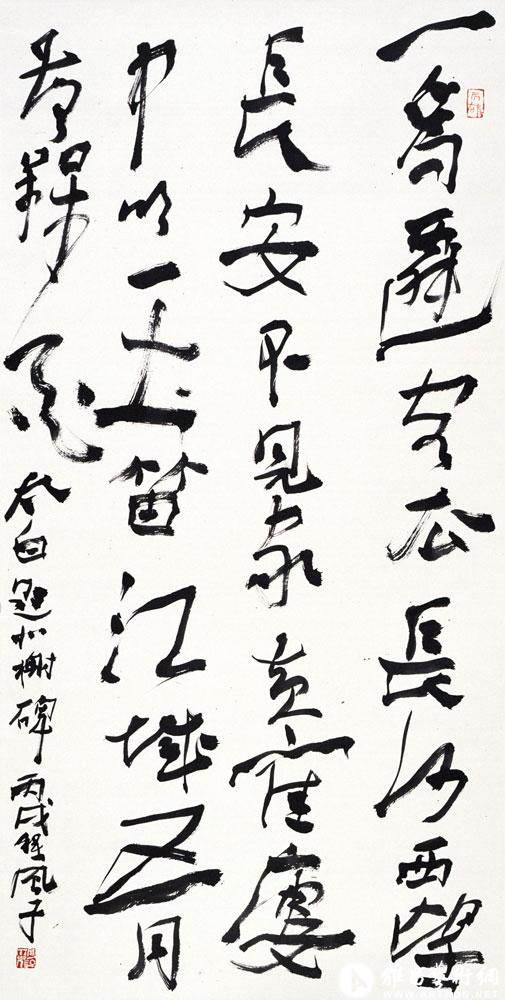 一為遷客去長沙西望
長安不見家黃鶴樓
中吹玉笛江城五月
落梅花
太白 榭碑 丙戌 風子
雅昌藝術網